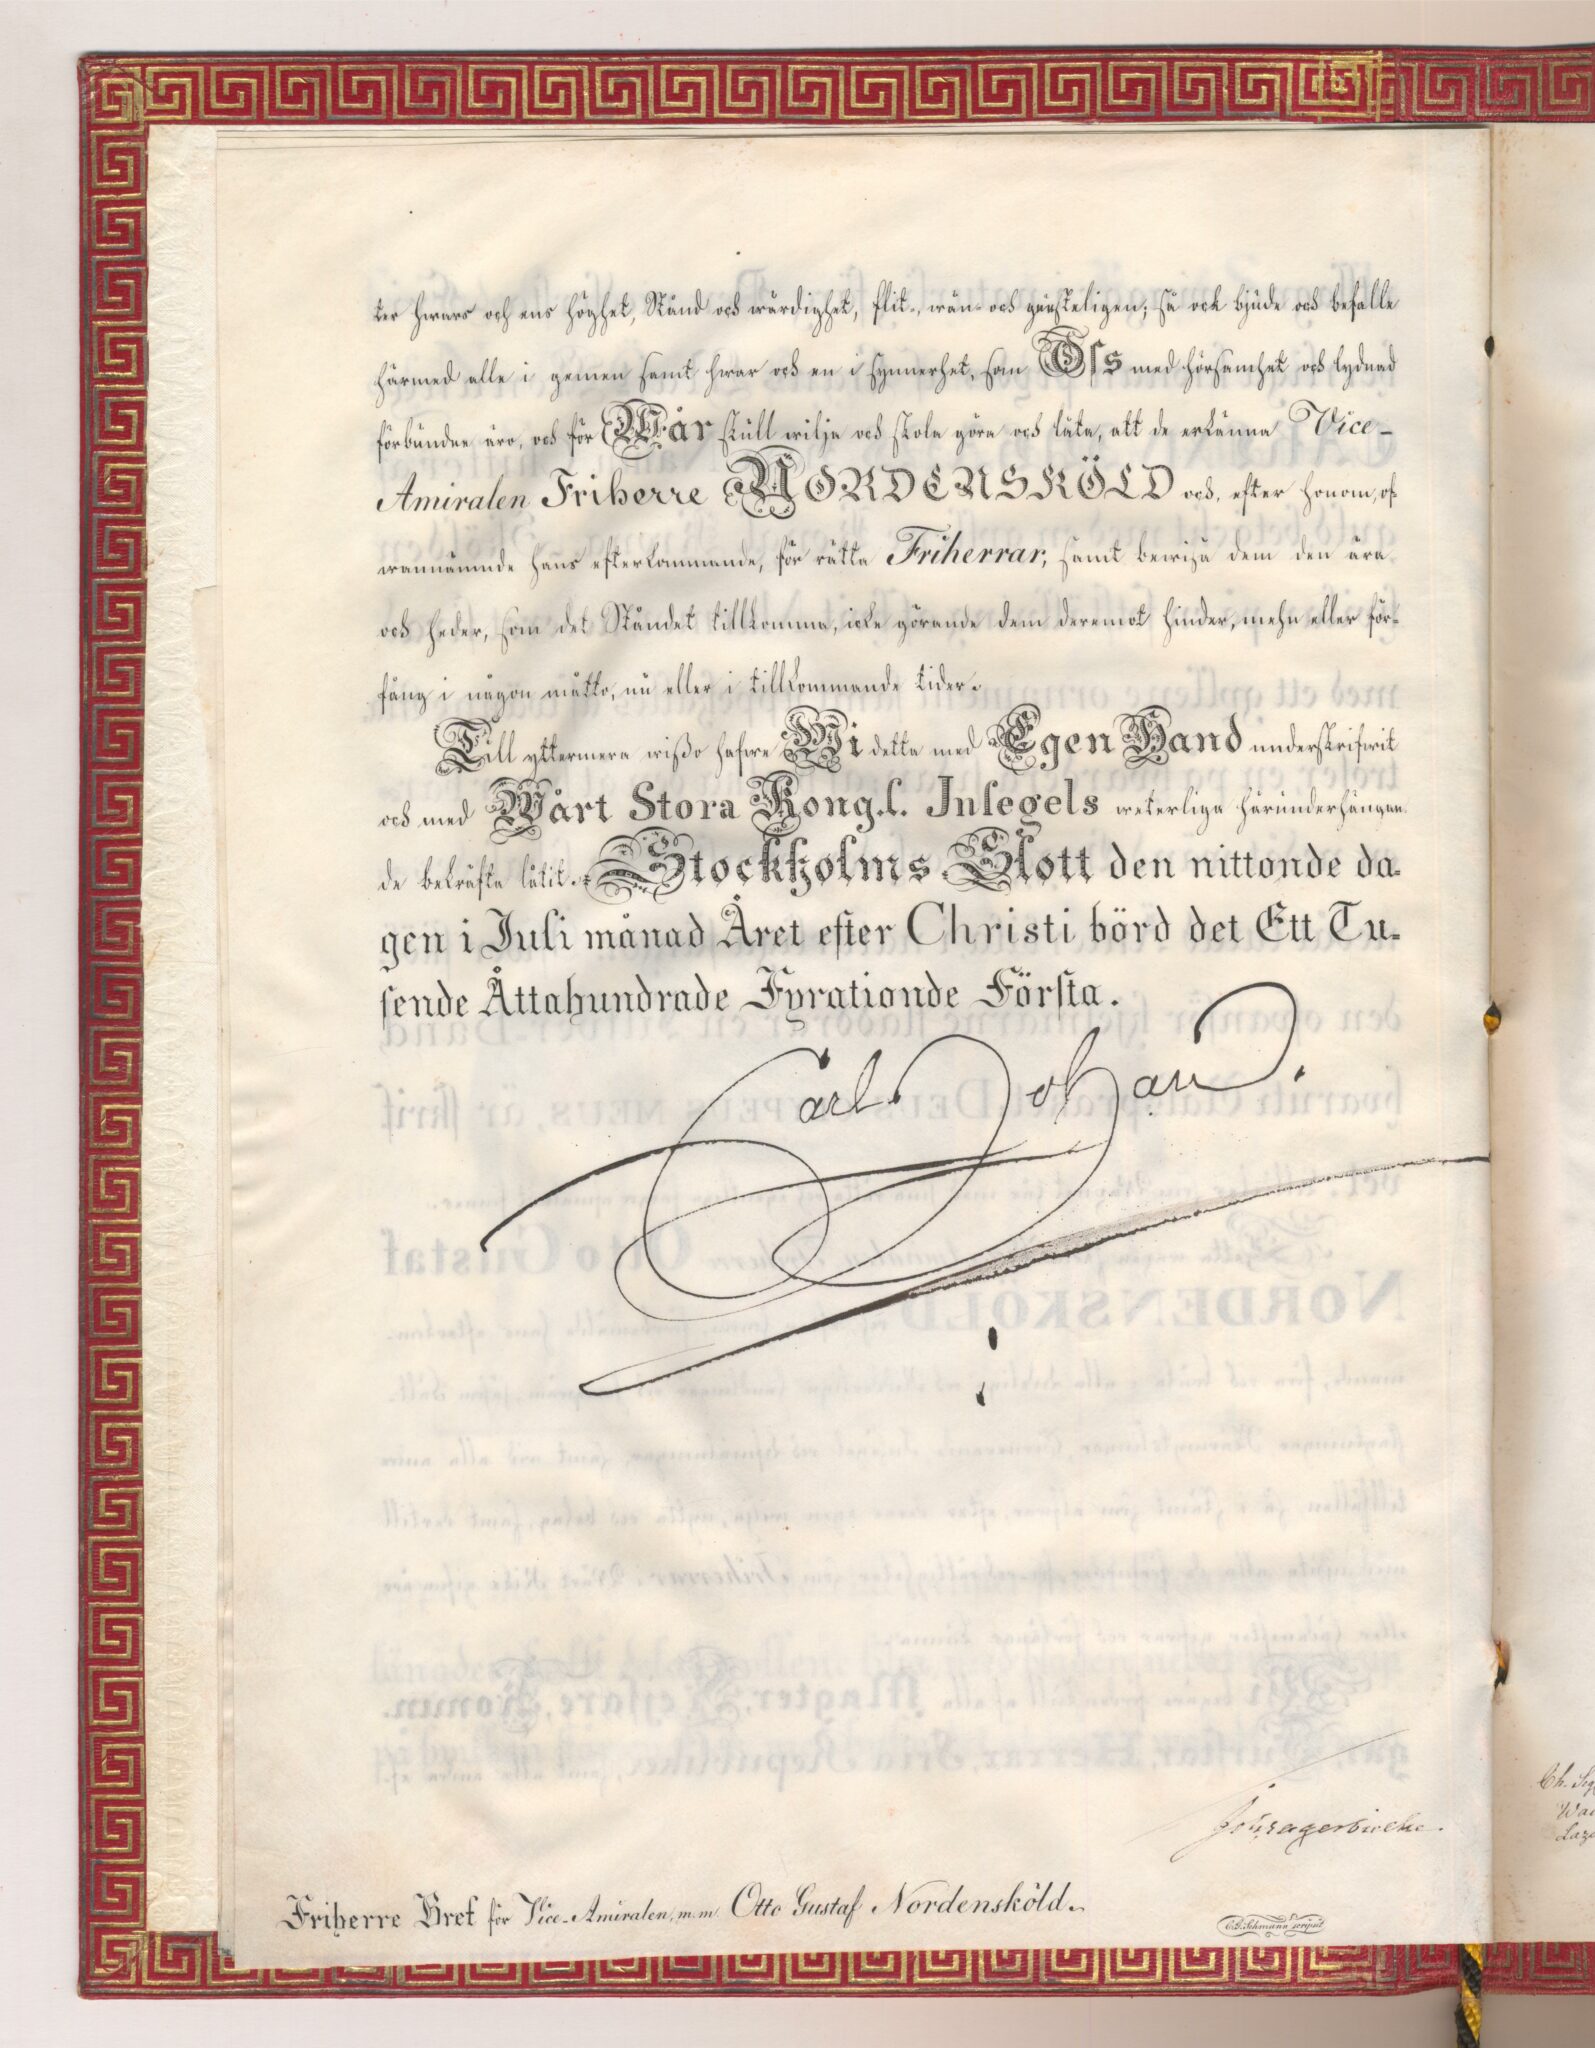 ter hwars och ens höghet, Stånd och wärdighet, flit-, wän- och gunsteligen; så ock bjude och befalle
härmed alle i gemen samt hwar och en i synnerhet, som Oss med hörsamhet och lydnad
förbundne äro, och för Wår skull wilja och skola göra och låta, att de erkänna Vice-
Amiralen Friherre NORDENSKÖLD och, efter honom, of-
wannämnde hans efterkommande, för rätta Friherrar, samt bewisa dem den ära
och heder, som det Ståndet tillkomma, icke görande dem deremot hinder, mehn eller för-
fång i någon måtto, nu eller i tillkommande tider.
Till yttermera wißo hafwe Wi detta med Egen Hand underskrifwit
och med Wårt Stora Kongl. Insegels weterliga härunderhängan-
de bekräfta låtit. Stockholms Slott den nittonde da-
gen i Juli månad Året efter Christi börd det Ett Tu-
sende Åttahundrade Fyrationde Första.
Carl Johan.
Friherre Bref för Vice-Amiralen, m.m. Otto Gustaf Nordensköld.
C.G. Lehmann scripsit